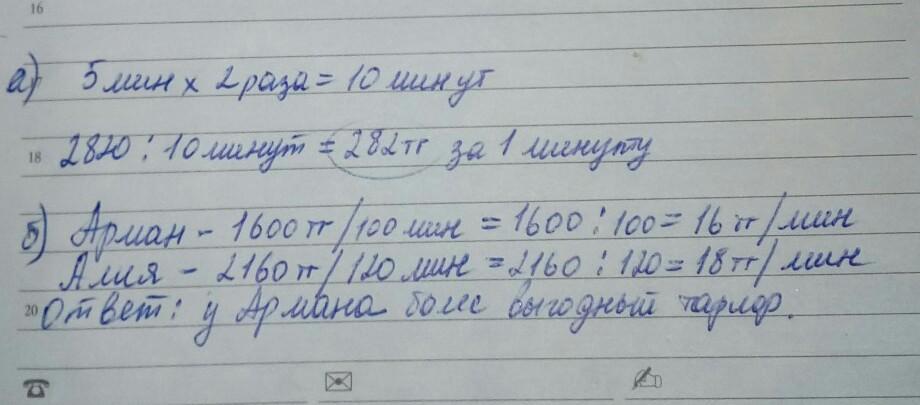 16
а) 5 мин x 2 раза = 10 минут
18 2820 : 10 минут = 282 тг за 1 минуту
б) Арман - 1600 тг/100 мин = 1600 : 100 = 16 тг/мин
Алия - 2160 тг/120 мин = 2160 : 120 = 18 тг/мин
20 Ответ: у Армана более выгодный тариф.